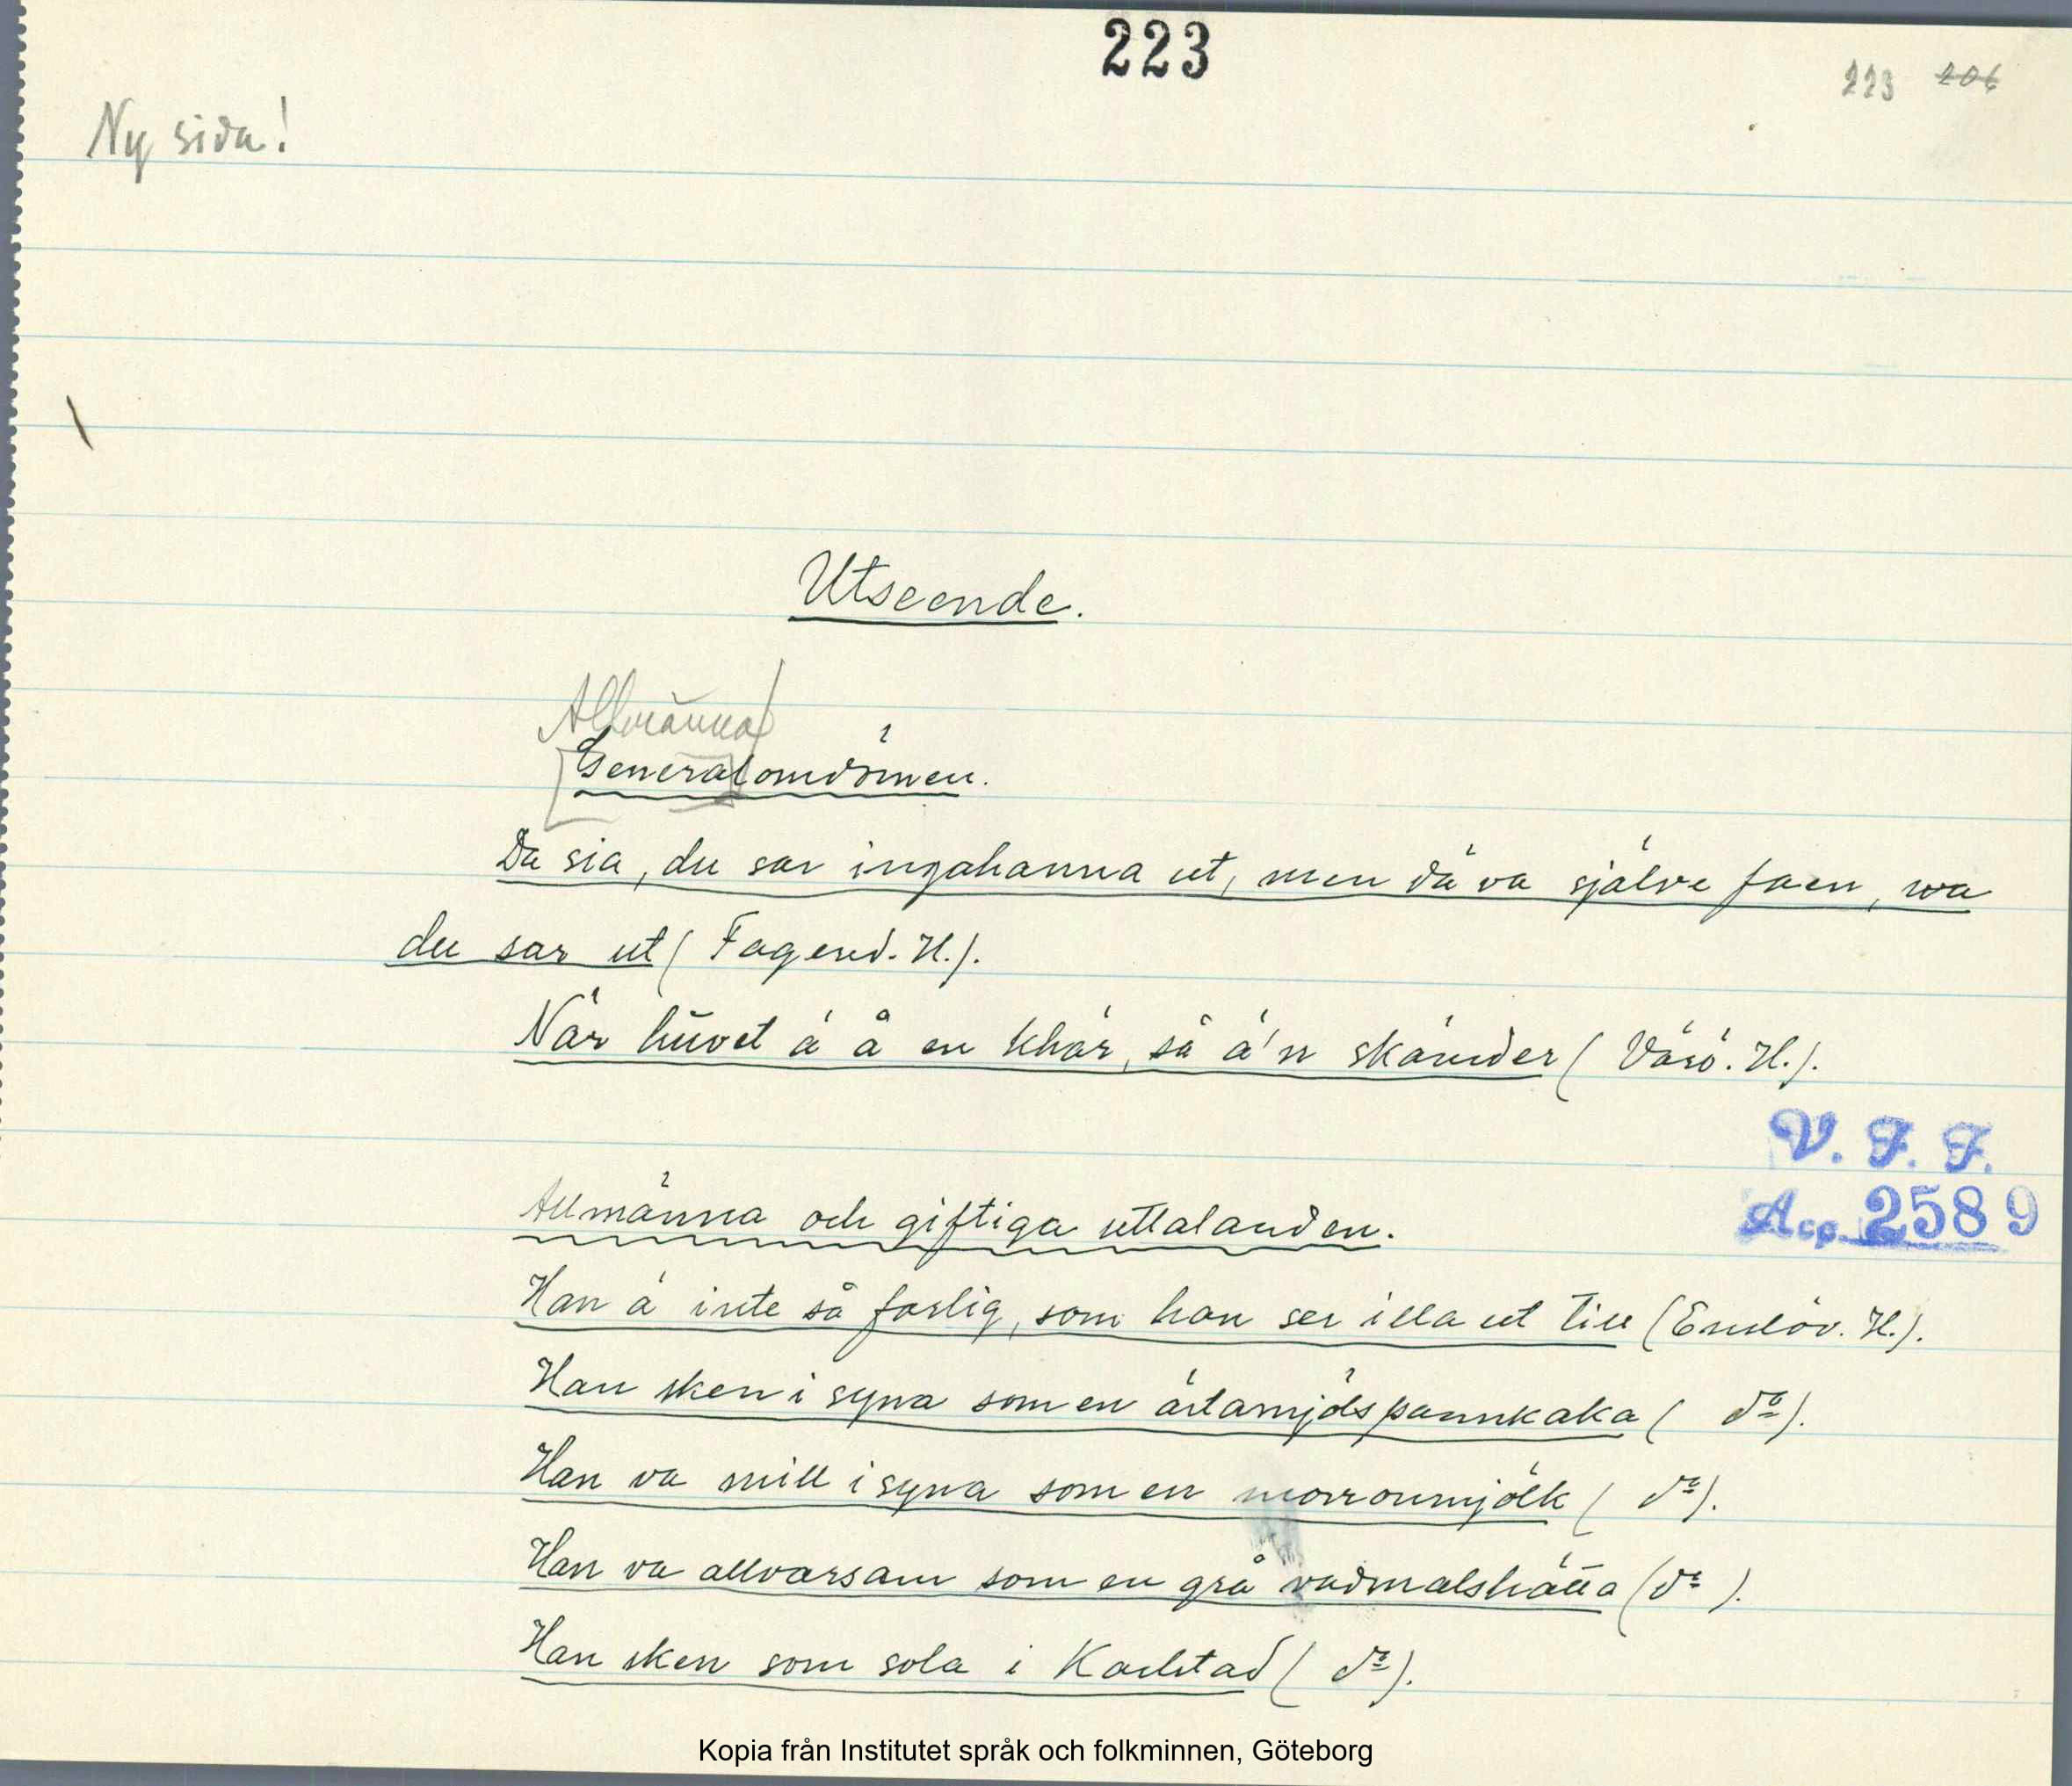 223
223 206
Ny sida!
Utseende.
Allmänna
Generalomdömen.
Du sia, du sar ingahanna ut, men dä va själve faen, va
du sar ut (Fagered. H.).
När huvet ä å en khär, så ä'n skänder (Värö. H.).
V. F. F.
Acp. 2589
Allmänna och giftiga uttalanden.
Han ä inte så farlig, som han ser illa ut till (Enslöv. H.).
Han sken i syna som en ärtamjölspannkaka ( do).
Han va mill i syna som en morronmjölk ( do).
Han va allvarsam som en grå vadmalshätta (do ).
Han sken som sola i Karlstad ( do).
Kopia från Institutet språk och folkminnen, Göteborg